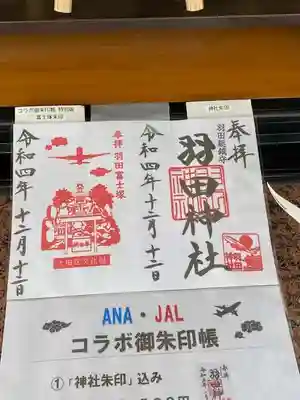 コラボ御朱印帳 特別版
富士塚朱印
神社朱印
奉拝
羽田総鎮守
羽田神社
令和四年十二月十二日
奉拝 羽田富士塚
令和四年十二月十二日
ANA・JAL
コラボ御朱印帳
①「神社朱印」込み